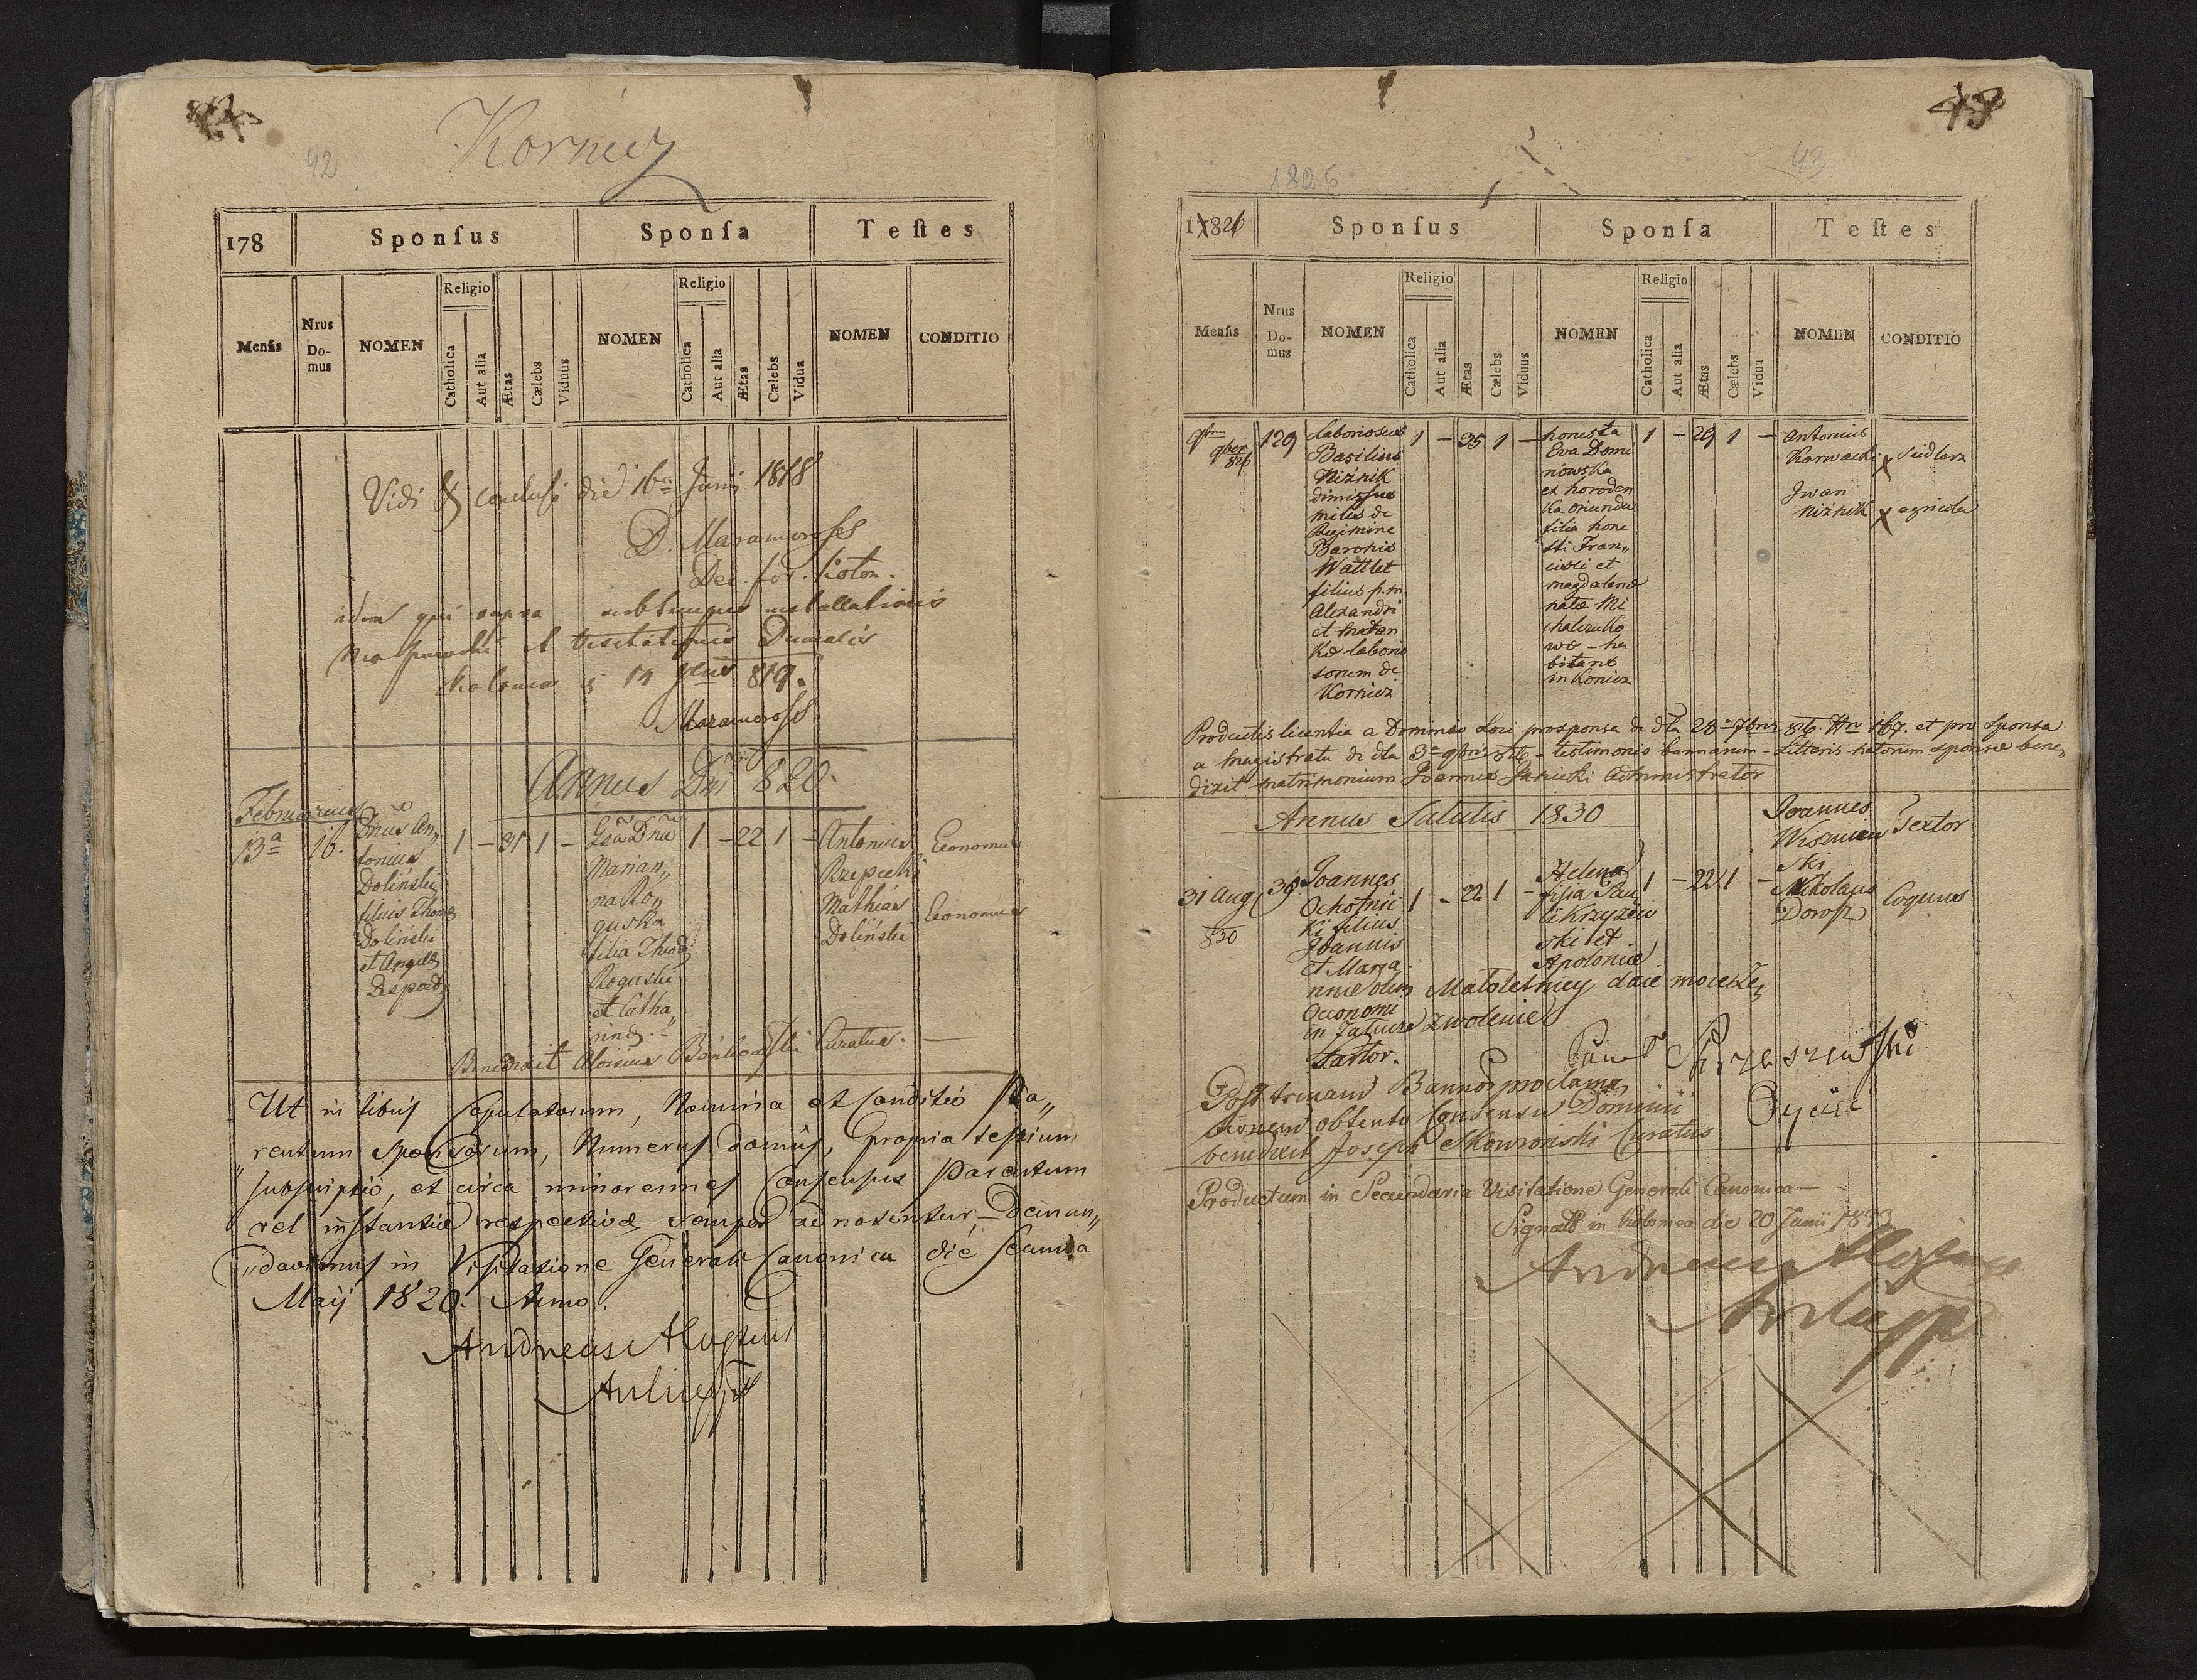 42
Kornicz
178
Sponſus
Sponſa
Teſtes
Menſis
Nrus Do-mus
NOMEN
Religio
Catholica
Aut alia
Ætas
Cælebs
Viduus
NOMEN
Religio
Catholica
Aut alia
Ætas
Cælebs
Vidua
NOMEN
CONDITIO
Vidi & conclusi die 16a Junij 1818
D. Maramorosz
Dec. for.
idem qui supra sub tempus installationis
Neo parochi et visitationis Decanalis
14 819.
Maramorosz
Annus Dni 820.
Februarius
13a
16.
Dnus An„
tonius
Doliński
filius Thomae
Doliński
et Angela
1 - 31 1 -
Gsa Dna
Marian„
na Ro„
guska
filia Theod
Roguski
et Catha„
rina.
1 - 22 1 -
Antonius
Rzepecki
Mathias
Doliński
Economus
Economus
Benedixit Aloisius Curatus.
Ut in libris Copulatorum, Nomina et Conditio Pa„
rentum Sponsorum, Numerus domus, propria testium
subscriptio, et circa minorennes Consensus Parentum
vel instantiae respectivae semper adnotentur
in Visitatione Generali Canonica die secunda
Maij 1820. Anno.
Andreas Aloysius
43
1826
43
17826
Sponſus
Sponſa
Teſtes
Menſis
Nrus Do-mus
NOMEN
Religio
Catholica
Aut alia
Ætas
Cælebs
Viduus
NOMEN
Religio
Catholica
Aut alia
Ætas
Cælebs
Vidua
NOMEN
CONDITIO
9ber
826
129
Laboriosus
Basilius
Niżnik
dimissus
miles de
Regimine
Baronis
Wattlet
filius p.m.
Alexandri
et
laborio
sorum de
Kornicz
1 - 35 1 -
honesta
Eva Domi
nowska
ex horoden
ka oriunda
filia hone
sti Fran„
cisci et
magdalena
nata Mi
chalczuko
wo - ha
bitans
in Konicz
1 - 29 1 -
Antonius
Karwacki x siedlarz
Jwan
Niżnik x agricola
Productis licentia a Dominio Loci pro sponsa de dto 28 7bris 826. Nro 167. et pro Sponsa
a Magistratu de dto 3a 9bris 826 - testimonio bannorum - Litteris natorum sponsae bene„
dixit matrimonium Joannes Janicki Administrator
Annus Salutis 1830
31 Aug
830
39
Joannes
Ochotnic
ki filius
Joannis
et Maria
nnae olim
Oeconomi
in
Sartor.
1 - 22 1 -
Helena
filia Pau
li Krzyzew
ski et
Apolonia
1 - 22 1 -
Joannes
Wiszniew
ski
Textor
Nikolaus
Dorosz
Coquus
Małoletniey daie moie ze„
zwolenie
Post trinam Bannor proclama„
tionem obtento Consensu Dominii
benedixit Joseph Skowroński Curatus
Oyciec
Productum in Secundaria Visitatione Generali Canonica —
Signat in Kolomea die 20 Junii
Andreas Aloysius